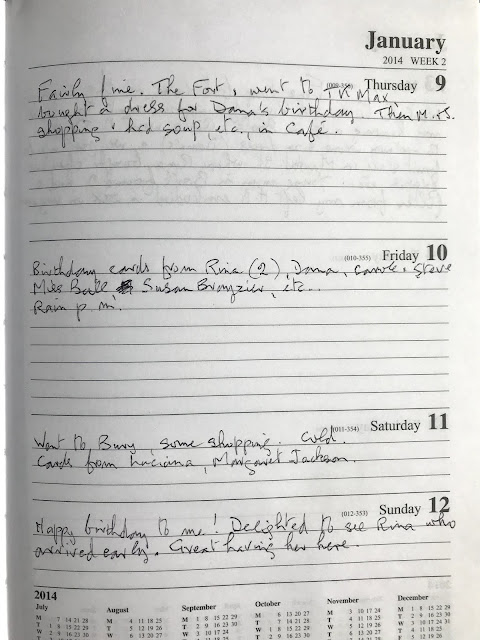 January
2014 WEEK 2
(009-356) Thursday 9
Fairly fine. The Fort, went to TK Max,
bought a dress for Dana's birthday. Then M.&S.
shopping & had soup, etc., in Café.
(010-355) Friday 10
Birthday cards from Rina (2), Dana, Carole & Steve
Miss Ball Susan etc..
Rain p.m.
(011-354) Saturday 11
Went to Bury, some shopping. Cold.
Cards from Luciana, Margaret Jackson.
(012-353) Sunday 12
Happy birthday to me! Delighted to see Rina who
arrived early. Great having her here.
2014
July August September October November December
M 7 14 21 28 M 4 11 18 25 M 1 8 15 22 29 M 6 13 20 27 M 3 10 17 24 M 1 8 15 22 29
T 1 8 15 22 29 T 5 12 19 26 T 2 9 16 23 30 T 7 14 21 28 T 4 11 18 25 T 2 9 16 23 30
W 2 9 16 23 30 W 6 13 20 27 W 3 10 17 24 W 1 8 15 22 29 W 5 12 19 26 W 3 10 17 24 31